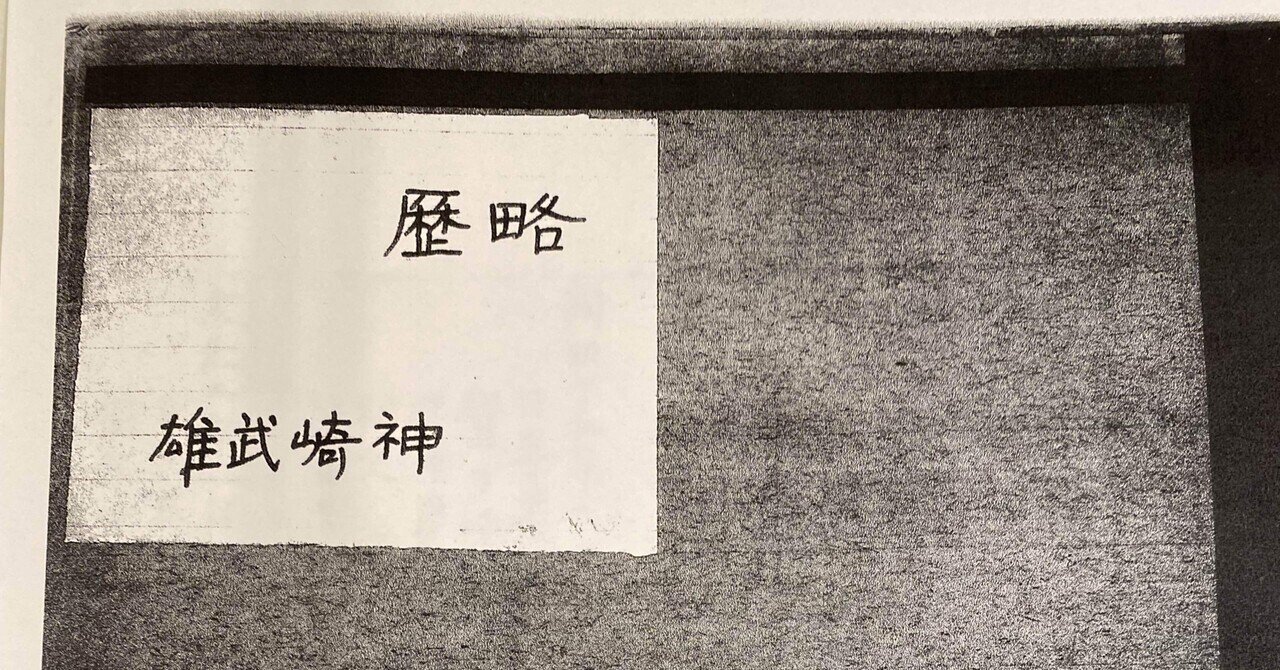 略歴
神崎武雄